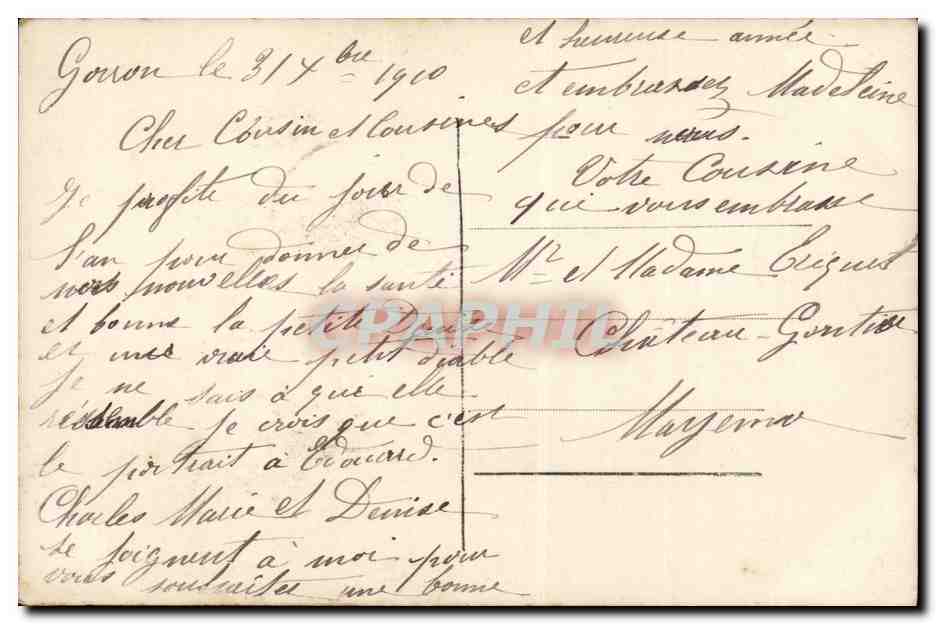 Gorron le 31 Xbre 1910
Cher Cousin et Cousines
Je profite du jour de
l'an pour donner de
nos nouvelles la santé
et bonne la petite Denise
et une vraie petit diable
Je ne sais à qui elle
résemble je crois que c'est
le portrait à Edouard.
Charles Marie et Denise
se joignent à moi pour
vous souhaitée une bonne
et heureuse année
et embrassez Madeleine
pour nous.
Votre Cousine
qui vous embrasse
Mr et Madame
Château-Gontier
Mayenne
CPAPHIL